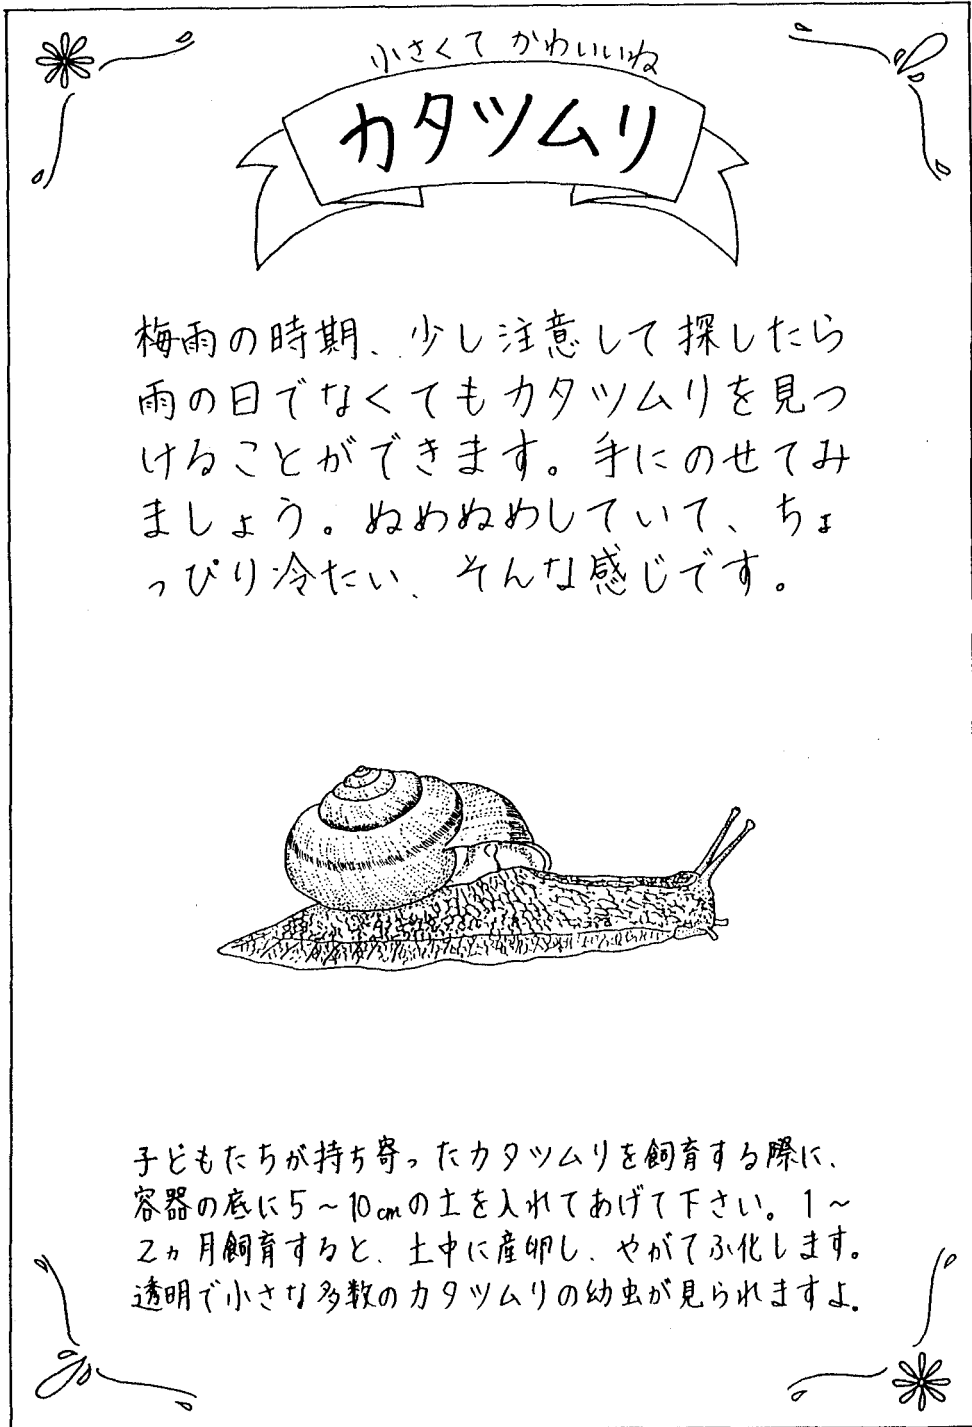 小さくて かわいいね
カタツムリ
梅雨の時期、少し注意して探したら
雨の日でなくてもカタツムリを見つ
けることができます。手にのせてみ
ましょう。ぬめぬめしていて、ちょ
っぴり冷たい、そんな感じです。
子どもたちが持ち寄ったカタツムリを飼育する際に、
容器の底に5～10cmの土を入れてあげて下さい。1～
2ヵ月飼育すると、土中に産卵し、やがてふ化します。
透明で小さな多数のカタツムリの幼虫が見られますよ。